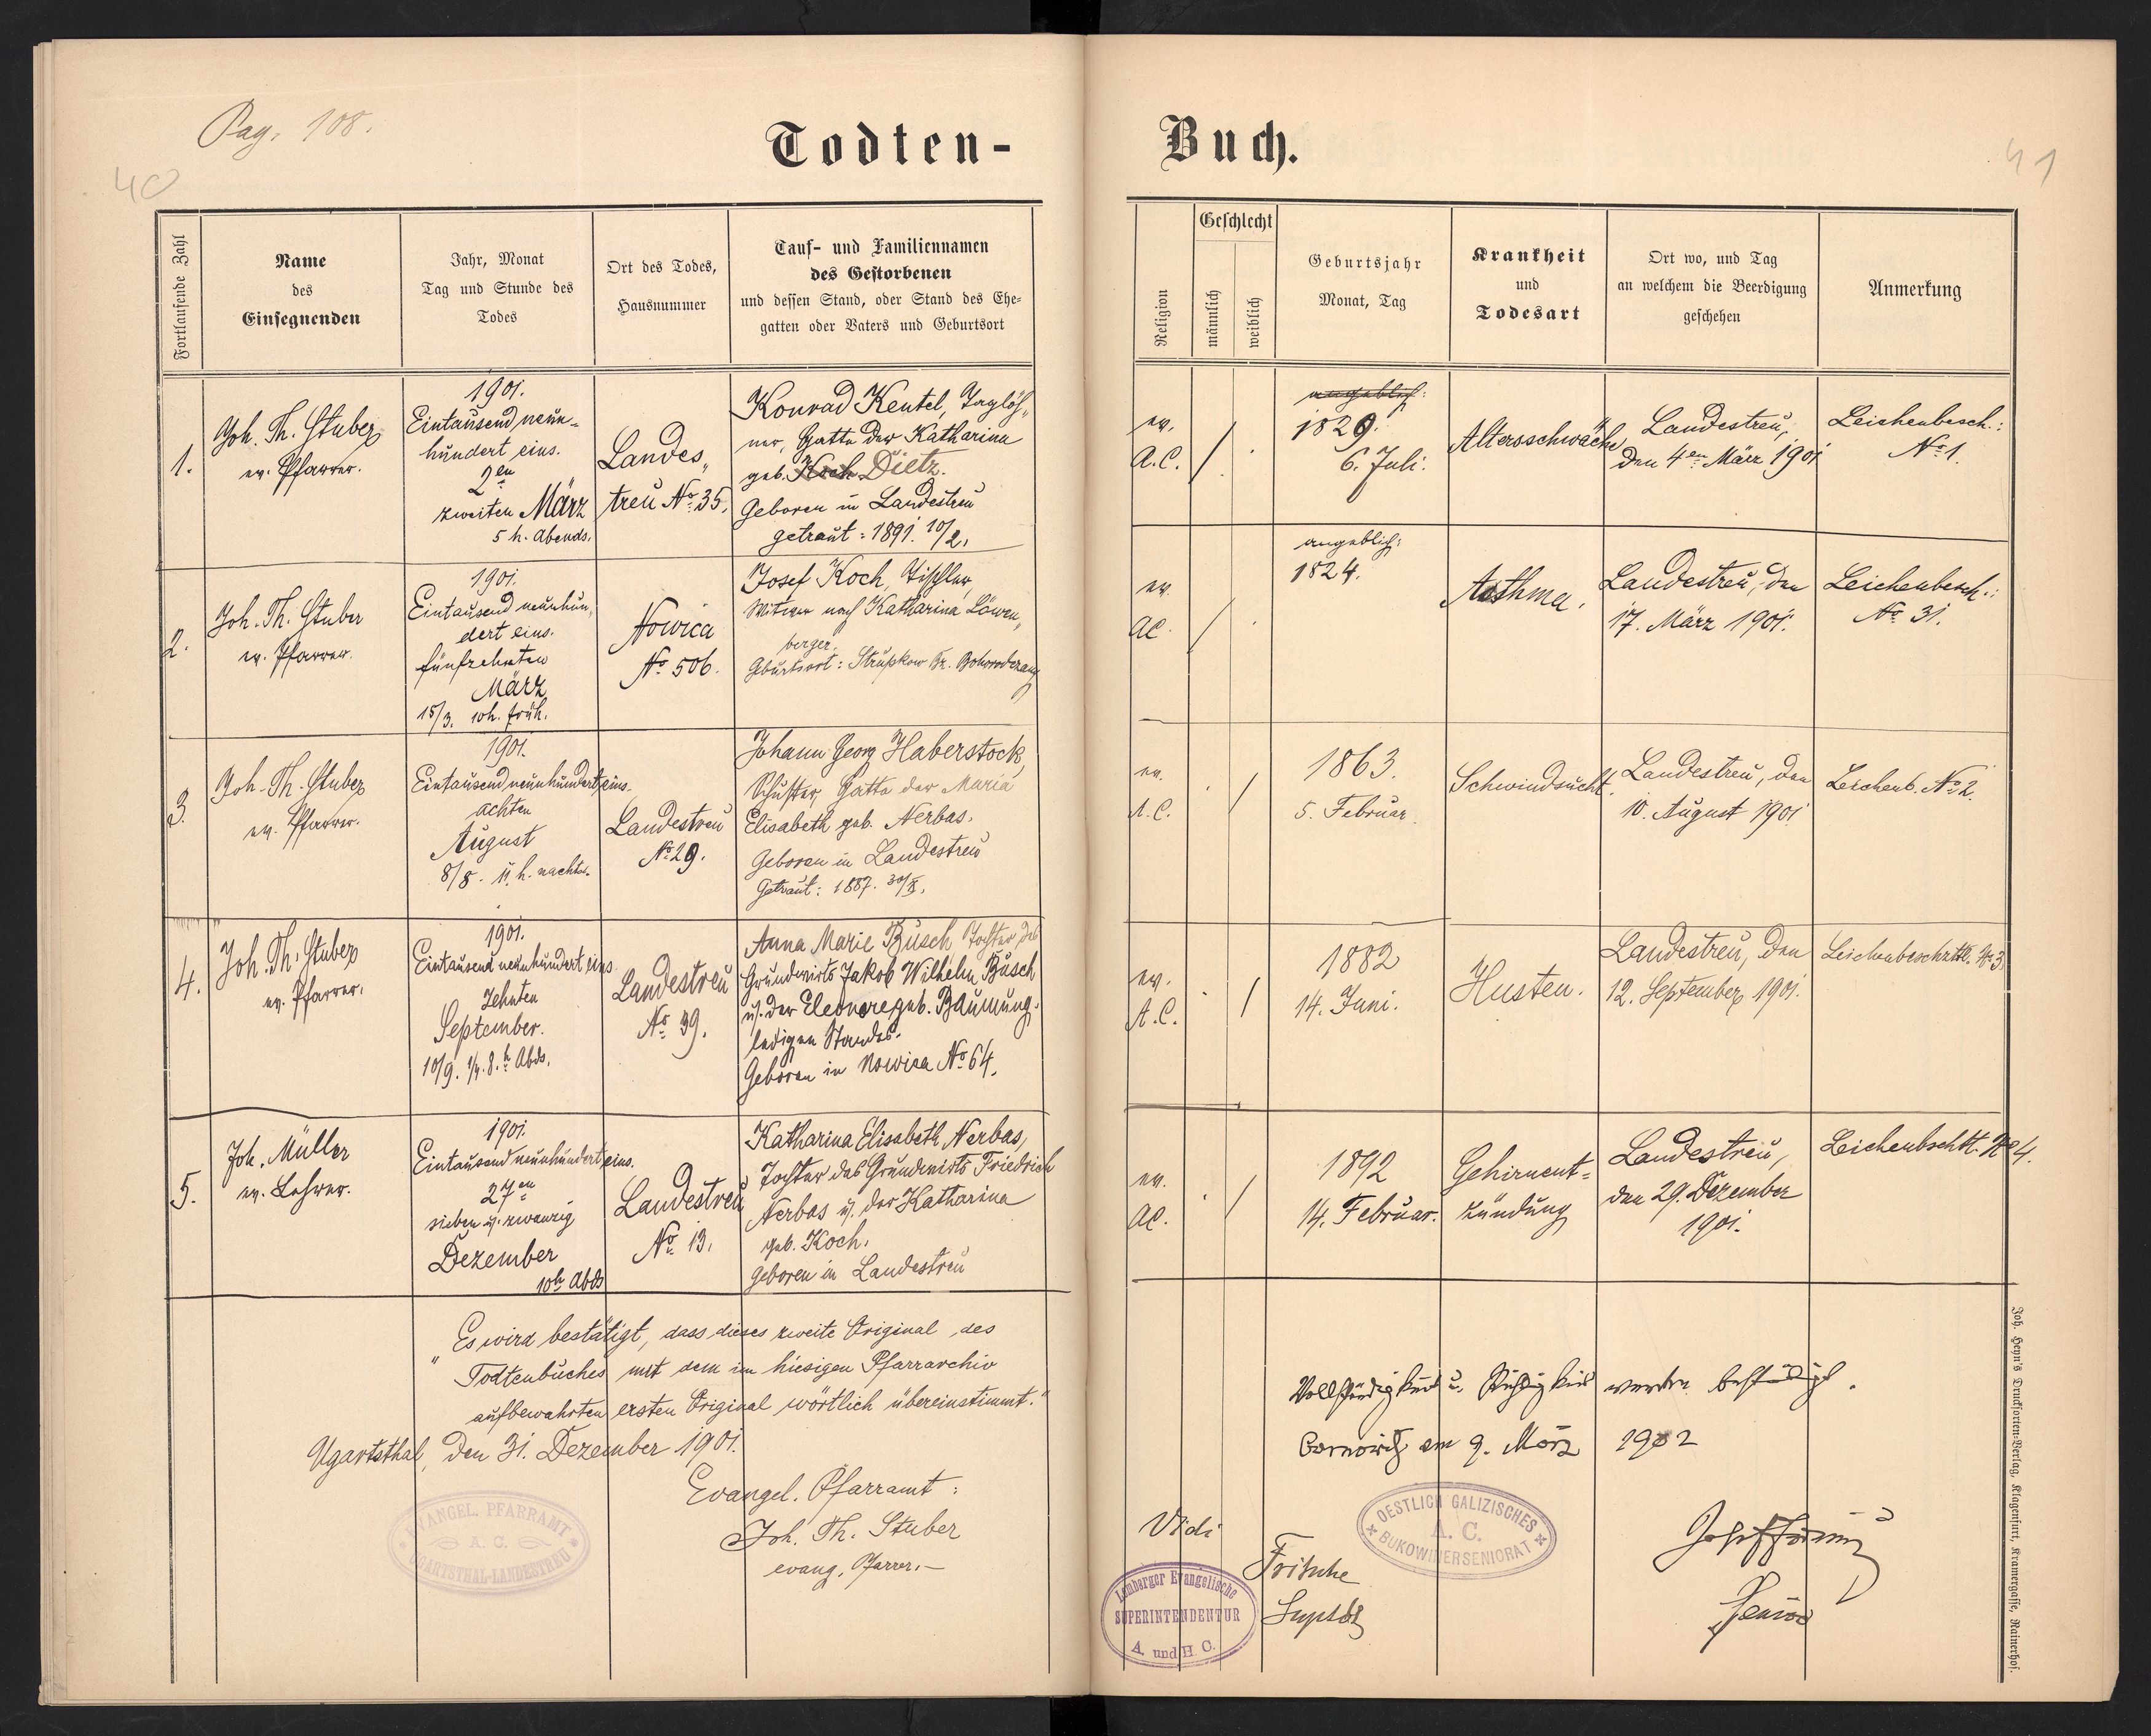 Pag. 108.
40
41
Todten-Buch.
Fortlaufende Zahl
Name
des
Einsegnenden
Jahr, Monat
Tag und Stunde des
Todes
Ort des Todes,
Hausnummer
Tauf- und Familiennamen
des Gestorbenen
und dessen Stand, oder Stand des Ehe-
gatten oder Vaters und Geburtsort
Religion
Geschlecht
männlich
weiblich
Geburtsjahr
Monat, Tag
Krankheit
und
Todesart
Ort wo, und Tag
an welchem die Beerdigung
geschehen
Anmerkung
1.
Joh. Th. Stuber
ev. Pfarrer.
1901.
Eintausend neun-
hundert eins.
2en
zweiten März
5 h. Abends.
Landes„
treu No 35.
Konrad Keutel, Taglöh„
ner, Gatte der Katharina
geb. Koch Dietz.
Geboren in Landestreu
getraut: 1891. 10/2.
ev.
A.C.
/
angeblich:
1829.
6. Juli.
Altersschwäche
Landestreu,
den 4en März 1901
Leichenbesch.:
No 1.
2.
Joh. Th. Stuber
ev. Pfarrer.
1901.
Eintausend neunhun„
dert eins.
fünfzehnten
März
15/3. 10h. früh.
Nowica
No 506.
Josef Koch, Tischler,
Witwer nach Katharina Löwen„
berger.
Geburtsort: Strupkow Bz. Bohorodczany
ev.
AC.
/
angeblich:
1824.
Asthma.
Landestreu, den
17. März 1901.
Leichenbesch.:
No 31.
3.
Joh. Th. Stuber
ev. Pfarrer.
1901.
Eintausend neunhundert eins.
achten
August
8/8. 11. h. nachts.
Landestreu
No 29.
Johann Georg Haberstock,
Schuster, Gatte der Maria
Elisabeth geb. Nerbas.
Geboren in Landestreu
Getraut: 1887. 30/X.
ev.
A.C.
/
1863.
5. Februar.
Schwindsucht.
Landestreu, den
10. August 1901
Leichenb. No 2.
4.
Joh. Th. Stuber
ev. Pfarrer.
1901.
Eintausend neunhundert eins
Zehnten
September.
10/9. 1/4. 8. h Abds.
Landestreu
No 39.
Anna Marie Busch Tochter des
Grundwirts Jakob Wilhelm Busch
u. der Eleonore geb. Baumung.
ledigen Standes.
Geboren in Nowica No 64.
ev.
A.C.
/
1882
14. Juni.
Husten.
Landestreu, den
12. September 1901.
Leichenbeschzttl. No 3.
5.
Joh. Müller
ev. Lehrer.
1901.
Eintausend neunhundert eins.
27en
sieben u. zwanzig
Dezember
10h Abds
Landestreu
No 13.
Katharina Elisabeth Nerbas,
Tochter des Grundwirts Friedrich
Nerbas u. der Katharina
geb. Koch.
Geboren in Landestreu
ev.
AC.
/
1892
14. Februar.
Gehirnent-
zündung
Landestreu,
den 29. Dezember
1901.
Leichenbschtt. No 4.
„Es wird bestätigt, dass dieses zweite Original des
Todtenbuches mit dem im hiesigen Pfarrarchiv
aufbewahrten ersten Original wörtlich übereinstimmt."
Ugartsthal, den 31. Dezember 1901.
Evangel. Pfarramt:
Joh. Th. Stuber
evang. Pfarrer.—
EVANGEL. PFARRAMT
A. C.
UGARTSTHAL-LANDESTREU
Vollständigkeit u. Richtigkeit werden bestätigt.
am 9. März 1902
OESTLICH GALIZISCHES
A. C.
BUKOWINERSENIORAT
Senior
Vidi
Fritsche
Suptdt
Lemberger Evangelische
SUPERINTENDENTUR
A. und H. C.
Joh. Heyn's Drucksorten-Verlag, Klagenfurt, Kramergasse, Rainerhof.